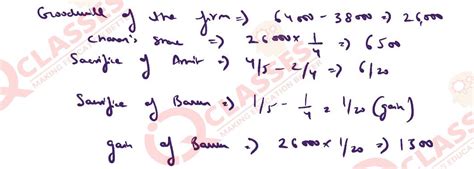 Goodwill of the firm => 64000 - 38000 => 26,000
Charan's share => 26000 x 1/4 => 6500
Sacrifice of Amit => 4/5 - 2/4 => 6/20
Sacrifice of Barun => 1/5 - 1/4 = 1/20 (gain)
gain of Barun => 26000 x 1/20 => 1300